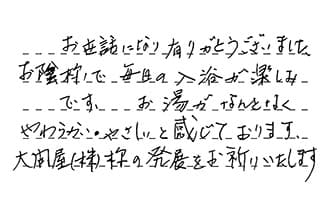 お世話になり有りがとうございました
お陰様で毎日の入浴が楽しみ
です。お湯がなんとなく
やわらかい・やさしいと感じております。
大関屋(株)様の発展をお祈りいたします